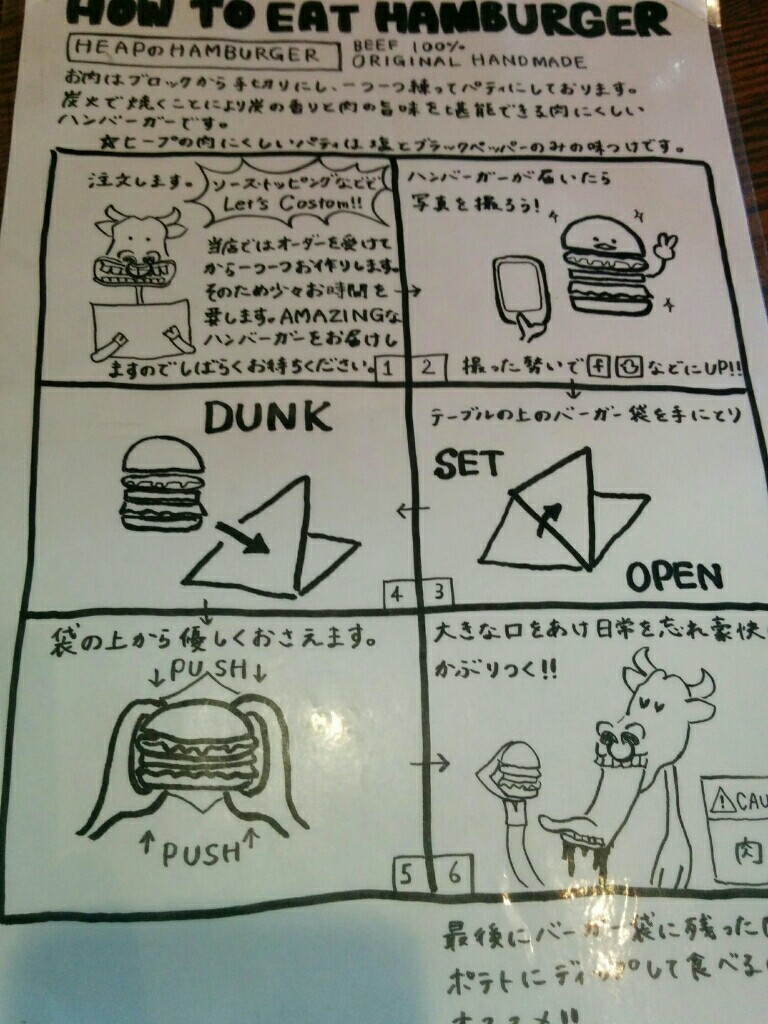 HOW TO EAT HAMBURGER
HEAPのHAMBURGER
BEEF 100%
ORIGINAL HANDMADE
お肉はブロックから手切りにし、一つ一つ練ってパティにしております。
炭火で焼くことにより炭の香りと肉の旨味を堪能できる肉にくしい
ハンバーガーです。
☆ヒープの肉にくしいパティは塩とブラックペッパーのみの味つけです。
注文します。
ソース・トッピングなどで
Let's Costom!!
当店ではオーダーを受けて
から一つ一つお作りします。
そのため少々お時間を
要します。AMAZINGな
ハンバーガーをお届けし
ますのでしばらくお待ちください。
1
ハンバーガーが届いたら
写真を撮ろう!
2
撮った勢いで f などにUP!!
テーブルの上のバーガー袋を手にとり
SET
OPEN
3
DUNK
4
袋の上から優しくおさえます。
↓PUSH↓
↑PUSH↑
5
大きな口をあけ日常を忘れ豪快
かぶりつく!!
6
⚠CAU
肉
最後にバーガー袋に残った
ポテトにディップして食べる
オススメ!!